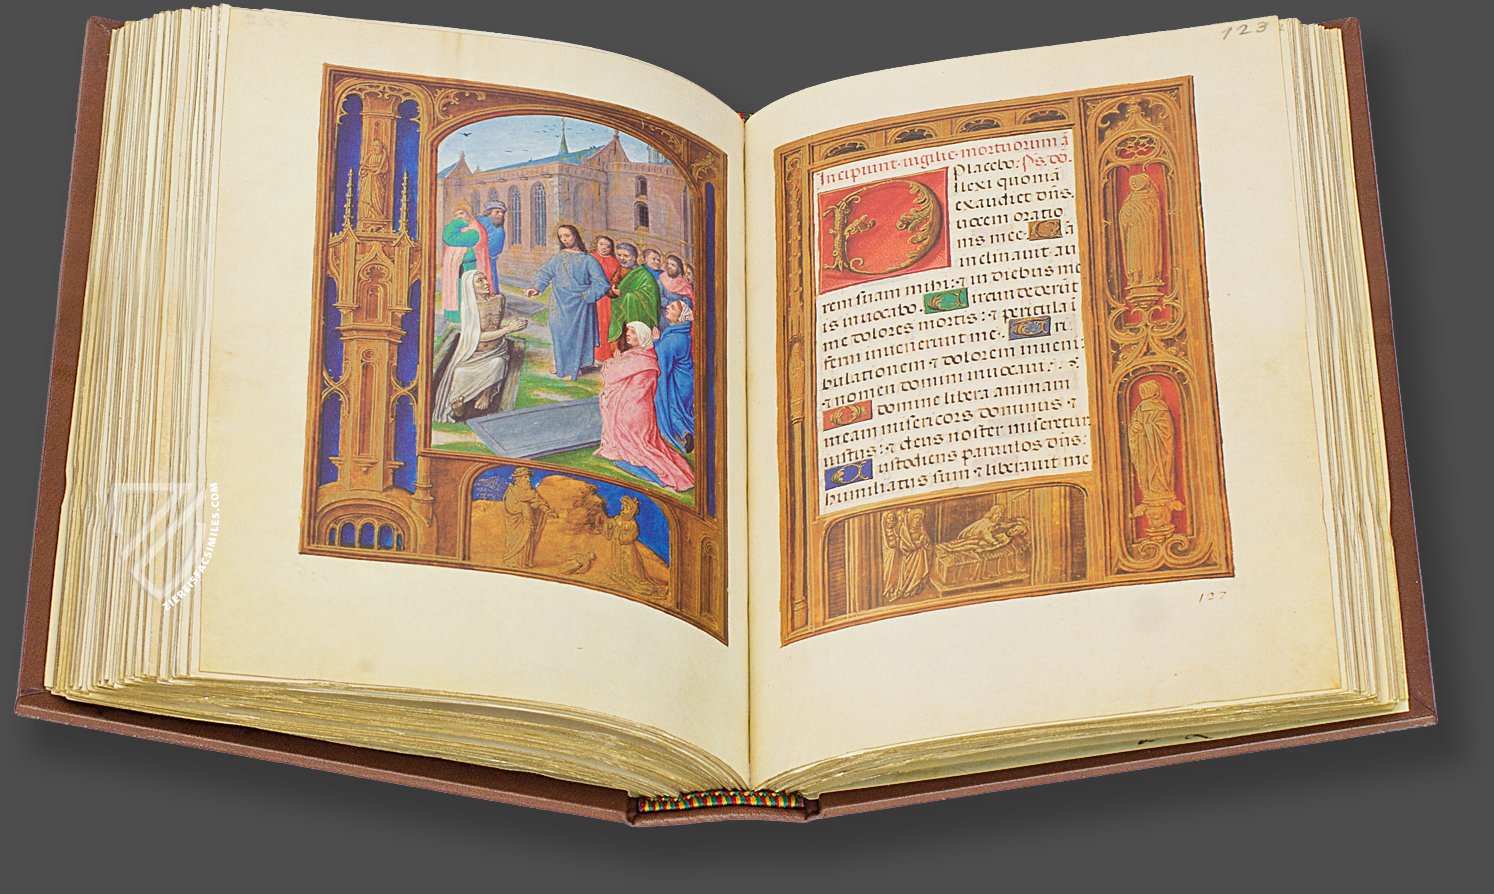 123
Incipiunt uigilie mortuorum ã
Placebo: Ps. Do.
D ilexi quoniã
exaudiet dñs.
uocem oratio
nis mee. Q ã
inclinauit au
rem suam mihi: ⁊ in diebus me
is inuocabo. C ircundederũt
me dolores mortis: ⁊ pericula ĩ
ferni inuenerunt me. T ri
bulationem ⁊ dolorem inueni:
⁊ nomen domini inuocaui:
O domine libera animam
meam misericors dominus ⁊
iustus: ⁊ deus noster miseretur
C ustodiens paruulos dñs:
humiliatus sum ⁊ liberauit me
127
ZIEREISFACSIMILES.COM